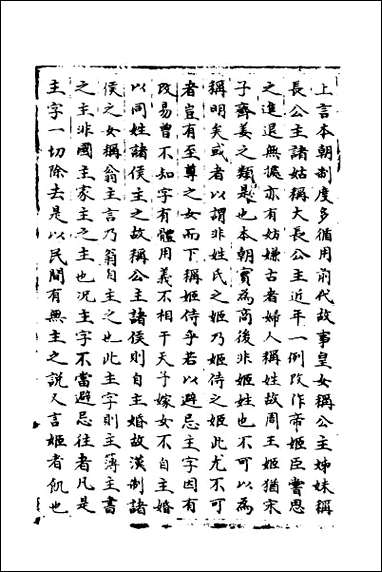 上言本朝制度多循用前代故事皇女稱公主姊妹稱
長公主諸姑稱大長公主近年一例改作帝姬臣嘗思
之進退無據亦有妨嫌古者婦人稱姓故周王姬猶宋
子齊姜之類是也本朝實為商後非姬姓也不可以為
稱明矣或者以謂非姓氏之姬乃姬侍之姬此尤不可
者豈有至尊之女而下稱姬侍乎若以避忌主字因有
改易曾不知字有體用義不相干天子嫁女不自主婚
以同姓諸侯主之故稱公主諸侯則自主婚故漢制諸
侯之女稱翁主言乃翁自主之也此主字則主簿主書
之主非國主家主之主也况主字不當避忌往者凡是
主字一切除去是以民間有無主之說又言姬者飢也